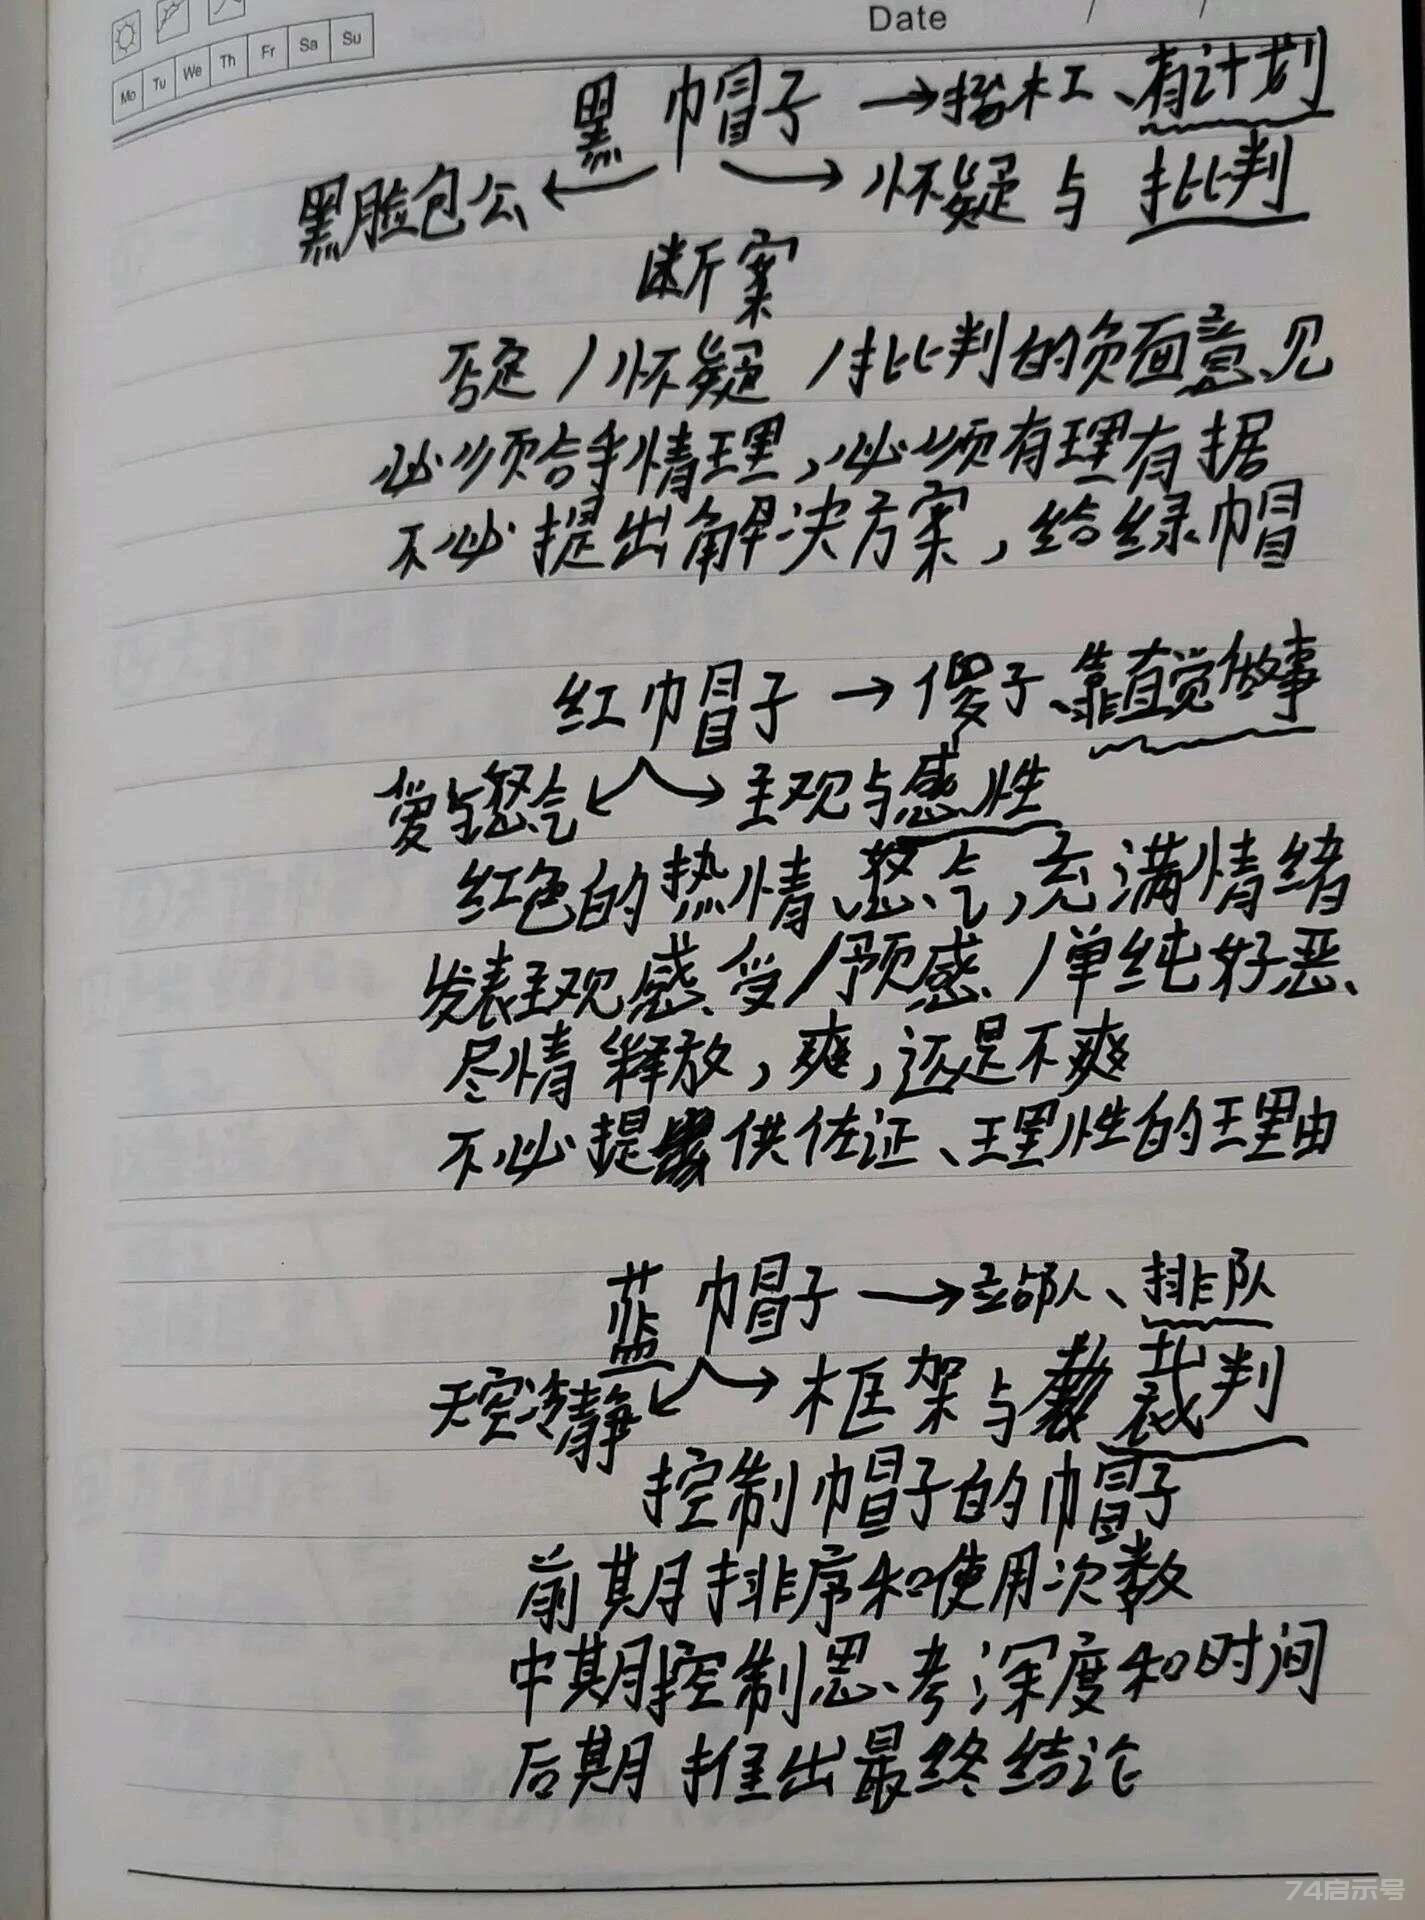 Date / /
Mo Tu We Th Fr Sa Su
黑帽子→抬杠、有计划
黑脸包公← →怀疑与批判
断案
否定/怀疑/批判的负面意见
必须合乎情理,必须有理有据
不必提出解决方案,给绿帽
红帽子→傻子、靠直觉做事
爱与怒气← →主观与感性
红色的热情、怒气,充满情绪
发表主观感受/预感/单纯好恶、
尽情释放,爽,还是不爽
不必提供佐证、理性的理由
蓝帽子→站队、排队
天空冷静← →框架与裁判
控制帽子的帽子
前期排序和使用次数
中期控制思考深度和时间
后期推出最终结论
74启示号